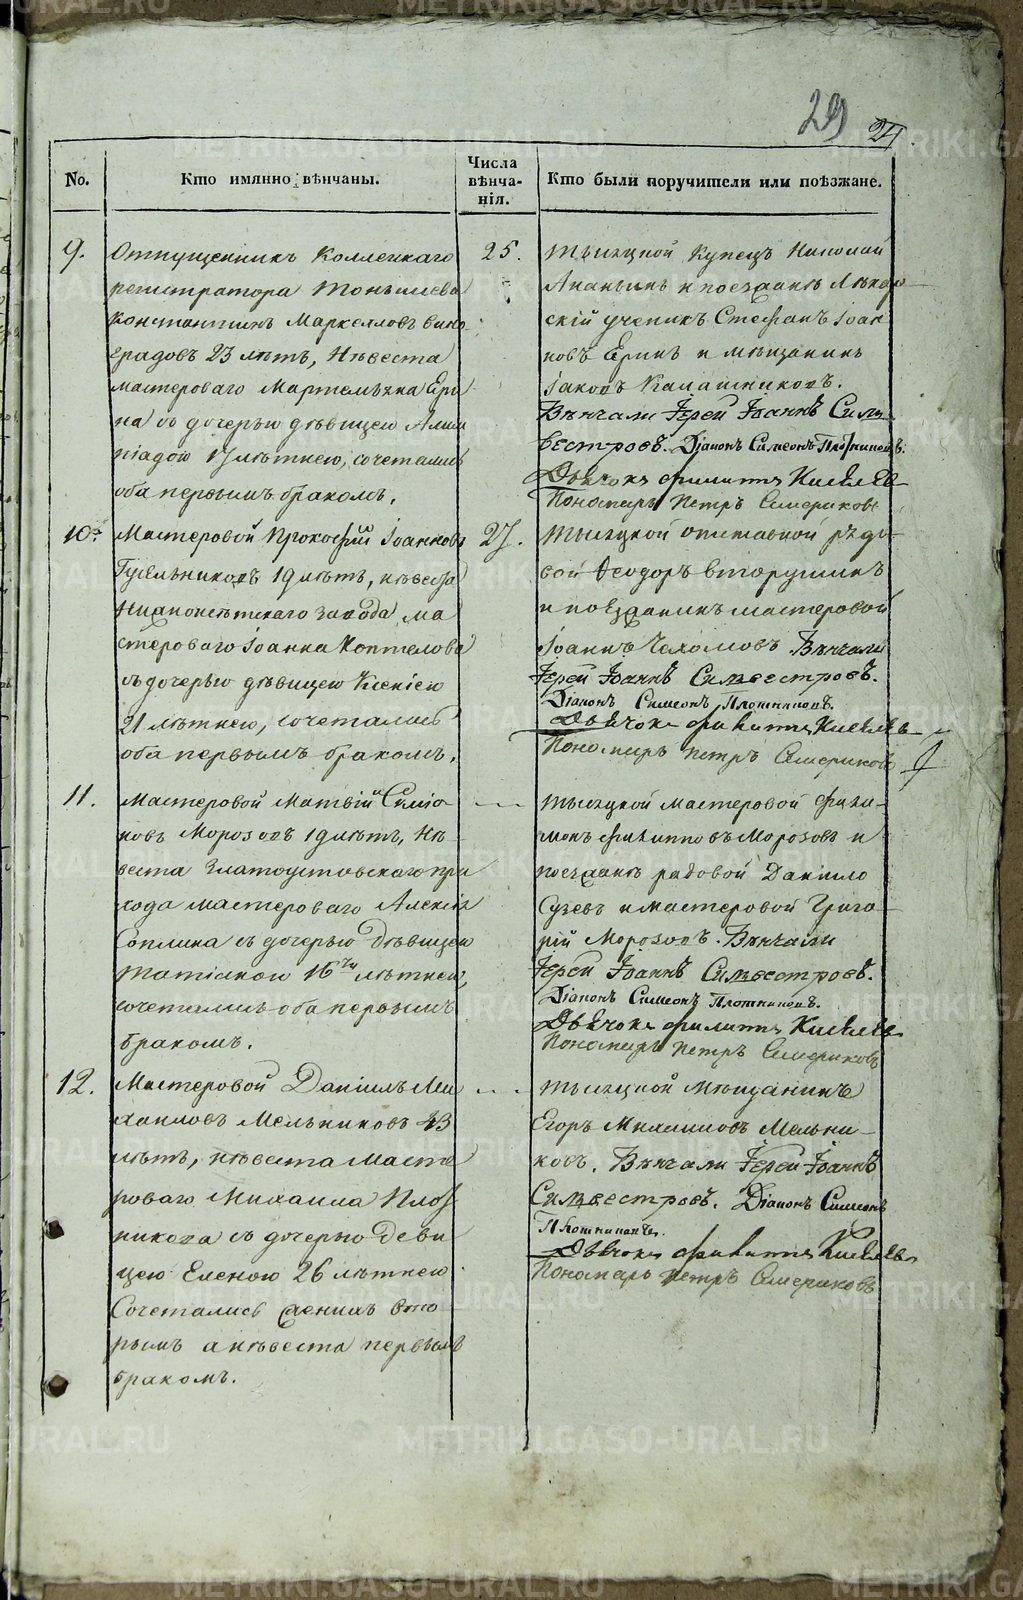 29 21
No.
Кто имянно вѣнчаны.
Числа
вѣнча-
нія.
Кто были поручители или поѣзжане.
9.
Отпущенникъ Коллежкаго
регистратора
Константинъ Маркелловъ Вино
градовъ 23 лѣтъ, Невѣста
мастероваго Ери
на съ дочерью дѣвицею Алим
піадою 17 лѣтнею, сочетались
оба первымъ бракомъ.
25.
Купецъ Николай
Ананьинъ и поезжанѣ Лѣкар
скій ученикъ Стефанъ Іоан
новъ Еринъ и мѣщанинъ
Іаковъ Калашниковъ.
Вѣнчали Іерей Іоаннъ Силь
вестровъ. Діаконъ Симеонъ Плотниковъ.
Дьячокъ Филиппъ Киселевъ
Пономарь Петръ
10.
Мастеровой Прокофій Іоанновъ
Гусельниковъ 19 лѣтъ, невеста
завода ма
стероваго Іоанна Коптелова
съ дочерью дѣвицею Ксеніею
21 лѣтнею, сочетались
оба первымъ бракомъ.
27.
отставной рядо
вой Ѳеодоръ Вторушинъ
и поѣзжанинъ мастеровой
Іоаннъ Вѣнчали
Іерей Іоаннъ Сильвестровъ.
Діаконъ Симеонъ Плотниковъ.
Дьячокъ Филиппъ Киселевъ
Пономарь Петръ
11.
Мастеровой Матвій Симіо
новъ Морозовъ 19 лѣтъ, Не
веста Златоустовскаго при
хода мастероваго Алексія
съ дочерью дѣвицею
Татіаною 16ти лѣтнею,
сочетались оба первымъ
бракомъ.
мастеровой Фили
монъ Филипповъ Морозовъ и
поезжанѣ рядовой Даніило
и мастеровой Григо
рій Морозовъ. Вѣнчали
Іерей Іоаннъ Сильвестровъ.
Діаконъ Симеонъ Плотниковъ.
Дьячокъ Филиппъ Киселевъ
Пономарь Петръ
12.
Мастеровой Даніилъ Ми
хаиловъ Мельниковъ 23
лѣтъ, невѣста Масте
роваго Михаила Плот
никова съ дочерью деви
цею Еленою 26 лѣтнею
Сочетались женихъ вто
рымъ а невѣста первымъ
бракомъ.
Мѣщанинъ
Егоръ Михаиловъ Мельни
ковъ. Вѣнчали Іерей Іоаннъ
Сильвестровъ. Діаконъ Симеонъ
Плотниковъ.
Дьячокъ Филиппъ Киселевъ
Пономарь Петръ
METRIKI.GASO-URAL.RU